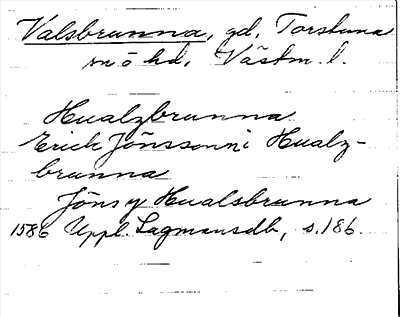 Valsbrunna, gd, Torstuna
sn o hd, Västm. l.
Hualzbrunna
Erich Jönsson i Hualz-
brunna
Jöns y Hualsbrunna
1586 Uppl. Lagmansdb, s. 186.